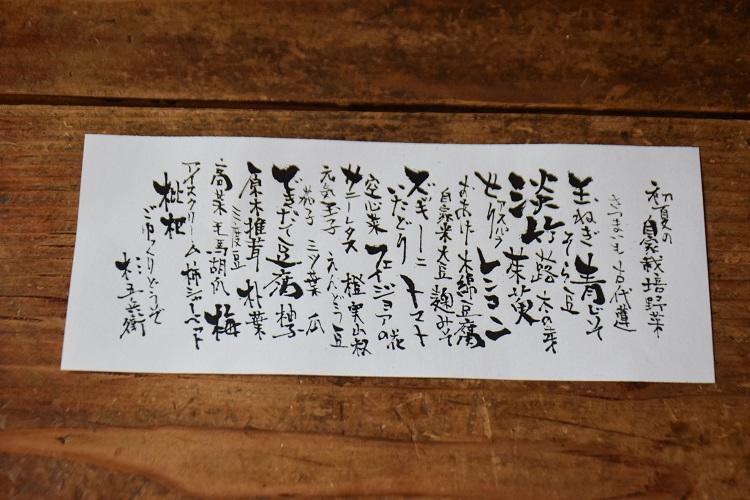 初夏の
自家栽培野菜
さつまいも 古代蓮
玉ねぎ 青じそ
そら豆
淡竹 蕗 木の芽
茶葉
せり アスパラ レモン
よあげ 木綿豆腐
自家米大豆 麹みそ
ズッキーニ トマト
いたどり フェイジョアの花
空心菜
サニーレタス 橙 実山椒
元気玉子 えんどう豆
茄子 三ツ葉 瓜
できたて豆腐 柚子
三度豆
原木椎茸 朴葉
高菜 生馬胡瓜 梅
アイスクリーム 柿シャーベット
枇杷
ごゆっくりどうぞ
杉五兵衛